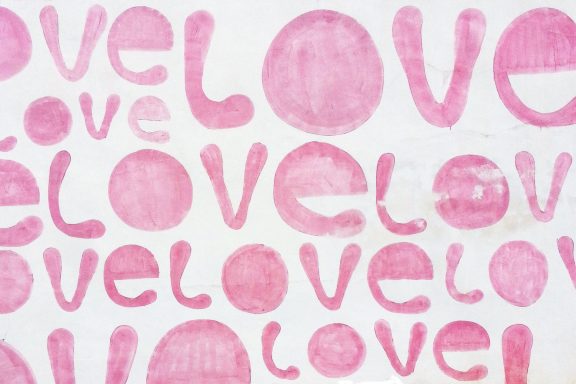 ove love
ove
e love lov
ove love lov
ovo love l